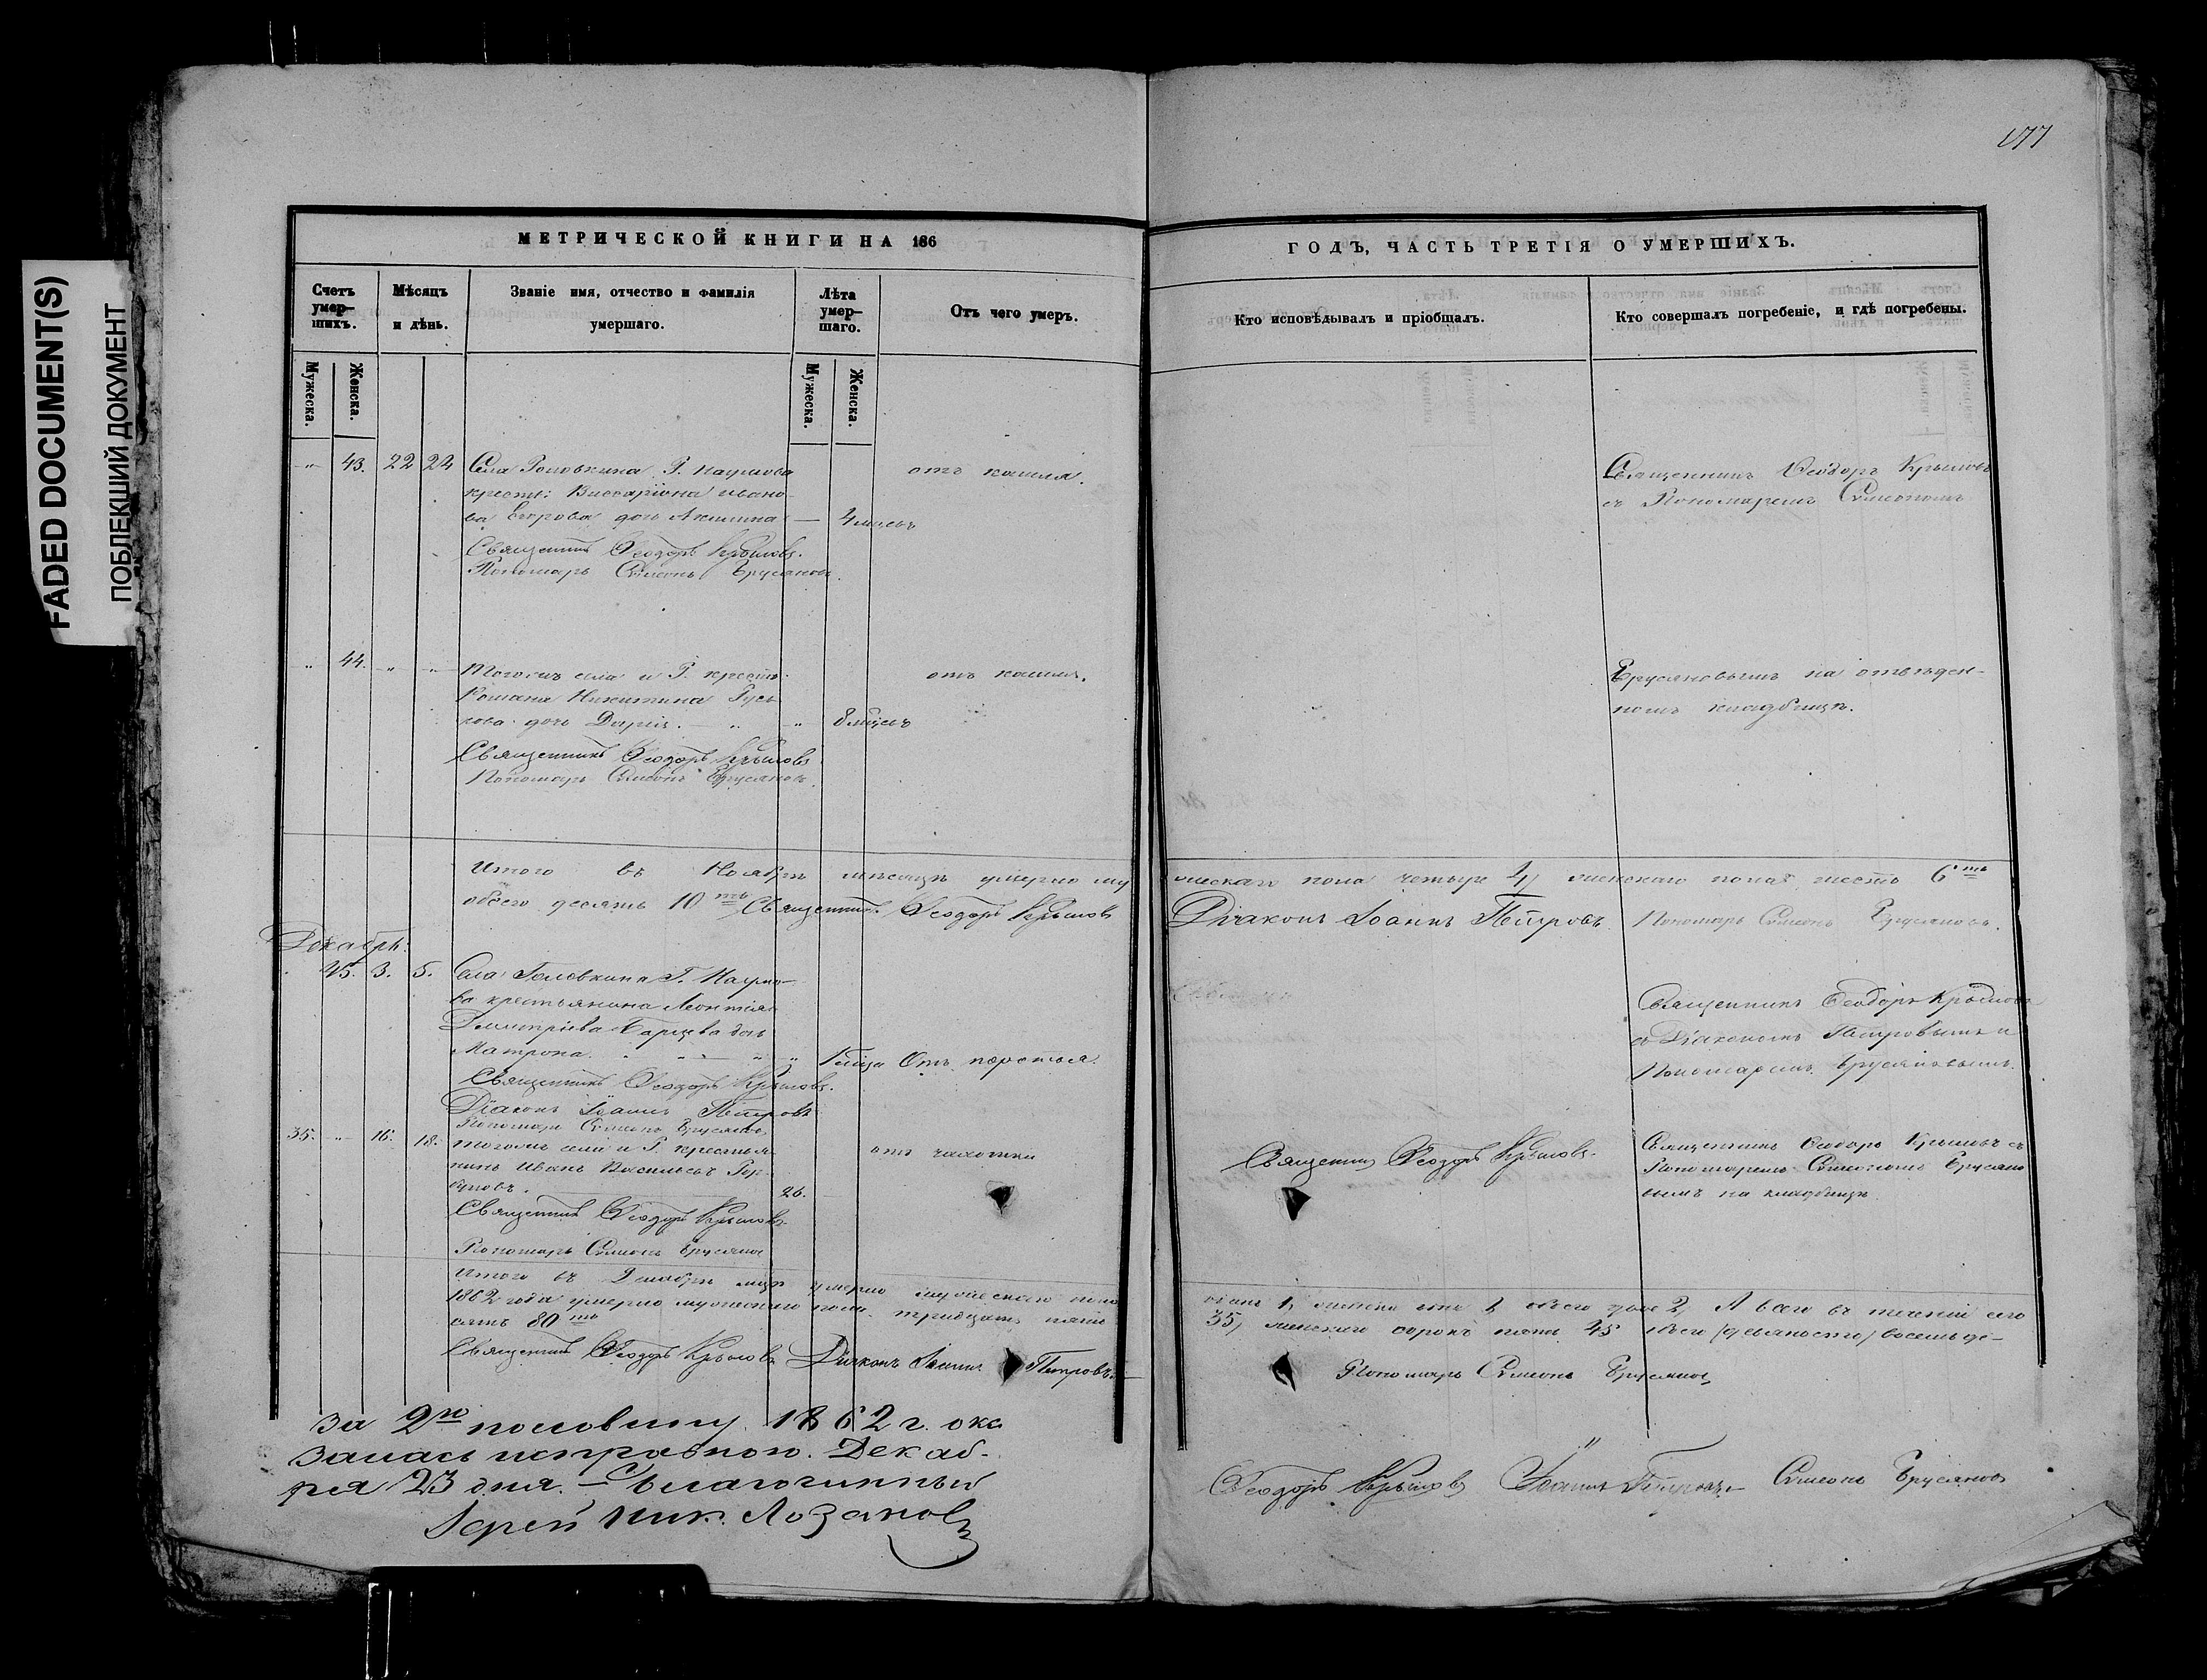 177
FADED DOCUMENT(S)
ПОБЛЕКШИЙ ДОКУМЕНТ
МЕТРИЧЕСКОЙ КНИГИ НА 186
ГОДЪ, ЧАСТЬ ТРЕТІЯ О УМЕРШИХЪ.
Счетъ умер-шихъ.
Мѣсяцъ и день.
Званіе имя, отчество и фамилія умершаго.
Лѣта умер-шаго.
Отъ чего умеръ.
Кто исповѣдывалъ и пріобщалъ.
Кто совершалъ погребеніе, и гдѣ погребены.
Мужеска.
Женска.
Мужеска.
Женска.
43. 22 24 Села Головкина Г. Наумова
отъ кашля.
крестьи: Виссаріона Ивано-
ва Егорова дочь Акилина 4 мѣсць
Священникъ Ѳеодоръ Крыловъ.
Пономарь Симеонъ Брусяновъ.
Священникъ Ѳеодоръ Крыловъ
съ Пономаремъ Симеономъ
44. Тогожъ села и Г. крестьи
отъ кашля.
Романа Никитина
дочь Дарія. 8 мѣсцъ
Священникъ Ѳеодоръ Крыловъ
Пономарь Симеонъ Брусяновъ.
Брусяновымъ на отведен-
номъ кладбищѣ.
Итого въ Ноябрѣ мѣсяцѣ умерло му
жескаго пола четыре 4, женскаго пола шесть 6ть
обоего десять 10ть Священникъ Ѳеодоръ Крыловъ
Діаконъ Іоаннъ Петровъ Пономарь Симеонъ Брусяновъ.
Декабрь.
45. 3. 5. Села Головкина Г. Наумо-
ва крестьянина Леонтія
Димитріева Барцева дочь
Матрона. Отъ коклюша.
Священникъ Ѳеодоръ Крыловъ.
Діаконъ Іоаннъ Петровъ
Пономарь Симеонъ Брусяновъ
Священникъ Ѳеодоръ Крыловъ
съ Діакономъ Петровымъ и
Пономаремъ Брусяновымъ.
35. 16. 18. Тогожъ села и Г. крестья
отъ чахотки
нинъ Иванъ Васильевъ Гор-
буновъ. 26.
Священникъ Ѳеодоръ Крыловъ
Пономарь Симеонъ Брусяновъ
Священникъ Ѳеодоръ Крыловъ.
Священникъ Ѳеодоръ Крыловъ съ
Пономаремъ Симеономъ Брусяно
вымъ на кладбищѣ.
Итого въ Декабрѣ мцѣ умерло мужескаго пола
1, женска 1, обоего двое 2, А всего въ теченіи сего
1862 года умерло мужескаго пола тридцать пять
35, женскаго сорокъ пять 45 обоего (девяносто) восемьде-
сятъ 80ть
Священникъ Ѳеодоръ Крыловъ Діаконъ Іоаннъ Петровъ.
Пономарь Симеонъ Брусяновъ
за 2ю половину 1862 г. ока
залась исправною. Декаб-
ря 23 дня. – Благочинный
Іерей Ник. Лозановъ
Ѳеодоръ Крыловъ Іоаннъ Петровъ Симеонъ Брусяновъ